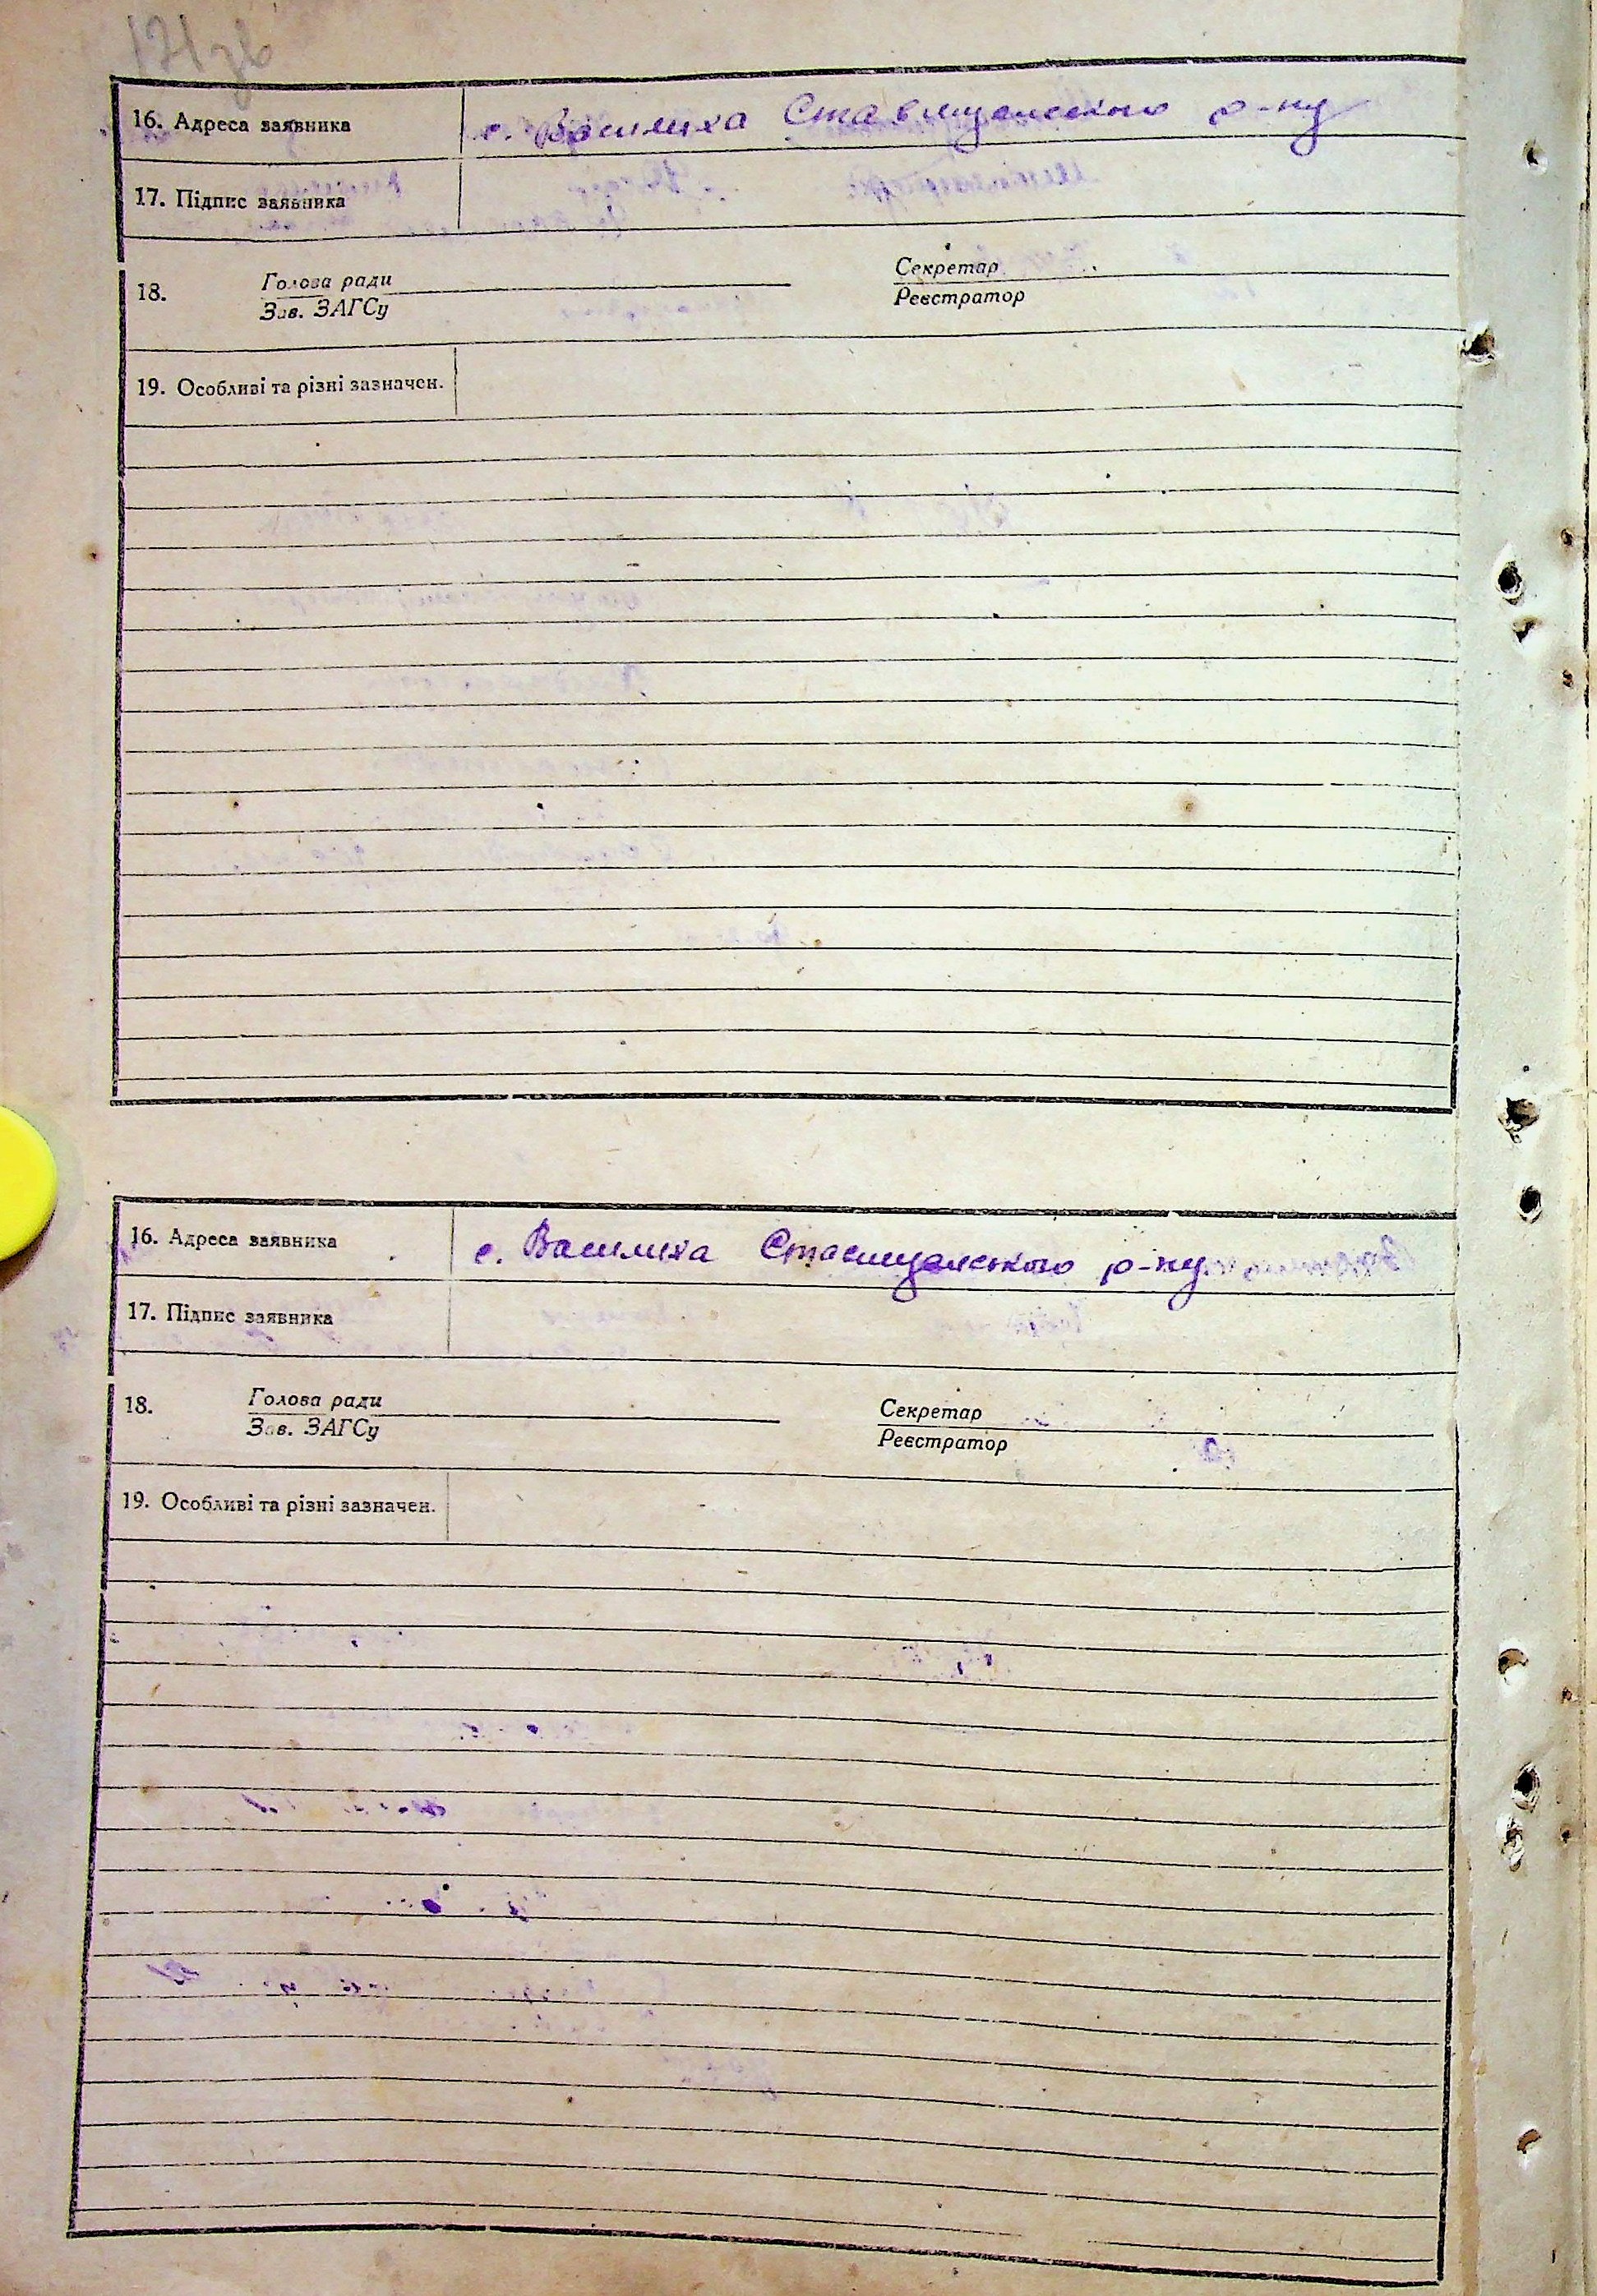 171зв
16. Адреса заявника с. Василиха Ставищанського р-ну
17. Підпис заявника
18. Голова ради Секретар
Зав. ЗАГСу Реєстратор
19. Особливі та різні зазначен.
16. Адреса заявника с. Василиха Ставищанського р-ну
17. Підпис заявника
18. Голова ради Секретар
Зав. ЗАГСу Реєстратор
19. Особливі та різні зазначен.